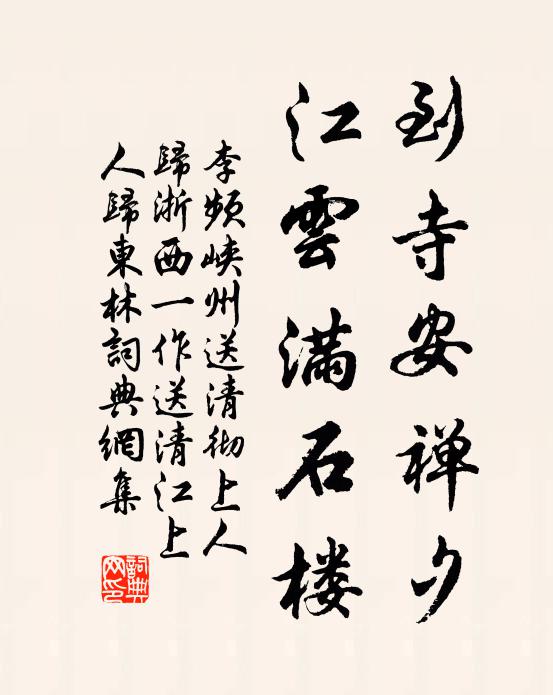 到寺安禅夕
江雲滿石楼
李頻峽州送清彻上人
歸浙西一作送清江上
人歸東林詞典網集
詞典網印